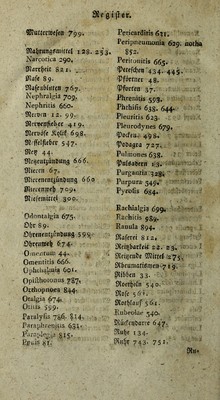 Register.
Mutterwesen 799.
Nahrungsmittel 128. 233.
Narcotica 290.
Narrheit 821.
Nase 89.
Nasenbluten 767.
Nephralgia 709.
Nephritis 660.
Nerven 12. 99.
Nervenfieber 419.
Nervöse Kolik 698.
Nesselfieber 547.
Ney 44.
Neyentzündung 666.
Nieren 67.
Nierenentzündung 660
Nierenweh 709.
Niesemittel 300.
Odontalgia 675.
Ohr 89.
Ohrenentzündung 599.
Ohrenweh 674.
Omentum 44.
Omentitis 666.
Ophthalmia 601.
Opisthotonus 787.
Orthopnoea 844.
Otalgia 674.
Otitis 599.
Paralysis 786. 814.
Paraphrenitis 631.
Paraplegia 815.
Pericarditis 611.
Peripneumonia 629. notha
852.
Peritonitis 665.
Petechen 434. 445.
Pförtner 48.
Pforten 37.
Phrenitis 593.
Phthisis 638. 644.
Pleuritis 623.
Pleurodynes 679.
Podagra 727.
Pulmones 638.
Purgantia 328.
Purpura 549.
Pyrosis 684.
Rachialgia 699.
Rachitis 989.
Ranula 894.
Raserei 812.
Reizbarkeit 22. 23.
Reizende Mittel 275.
Rheumatismen 719.
Ribben 33.
Roetheln 540.
Rose 561.
Rothlauf 561.
Rubeolae 540.
Rückendarre 647.
Ruhr 134.
Ruhr 743. 751.
Ru-